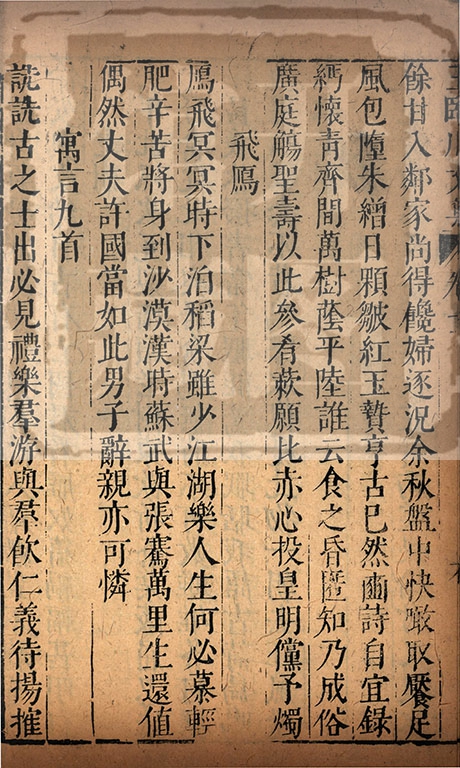 餘甘入鄰家尚得饞婦逐況余秋盤中快噉取饜足
風包墮朱繒日顆皺紅玉贄亨古已然豳詩自宜錄
緬懷青齊間萬樹蔭平陸誰云食之昏匿知乃成俗
廣庭觴聖壽以此參肴蔌願比赤心投皇明儻予燭
飛鴈
鴈飛冥冥時下泊稻梁雖少江湖樂人生何必慕輕
肥辛苦將身到沙漠漢時蘇武與張騫萬里生還值
偶然丈夫許國當如此男子辭親亦可憐
寓言九首
詵詵古之士出必見禮樂羣游與羣飲仁義待揚推